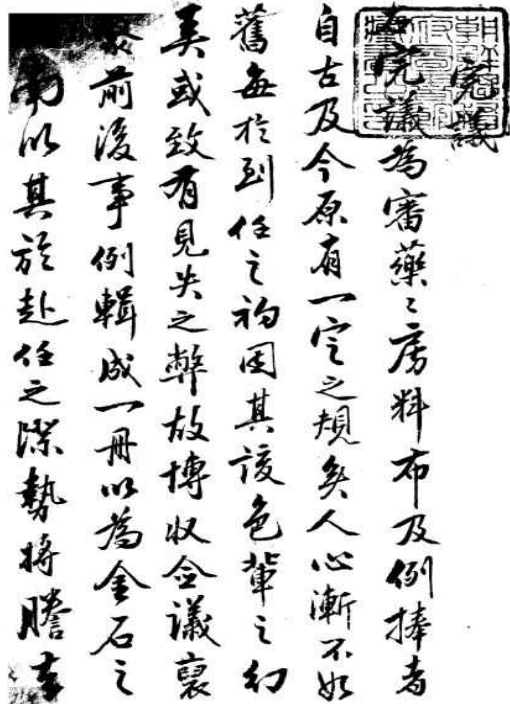 完議
右完議為審藥〻房料布及例捧者
自古及今原有一定之規矣人心漸不如
舊每於到任之初因其該色輩之幻
弄或致有見失之弊故博收僉議裒
前後事例輯成一冊以為金石之
以其於赴任之際勢將謄